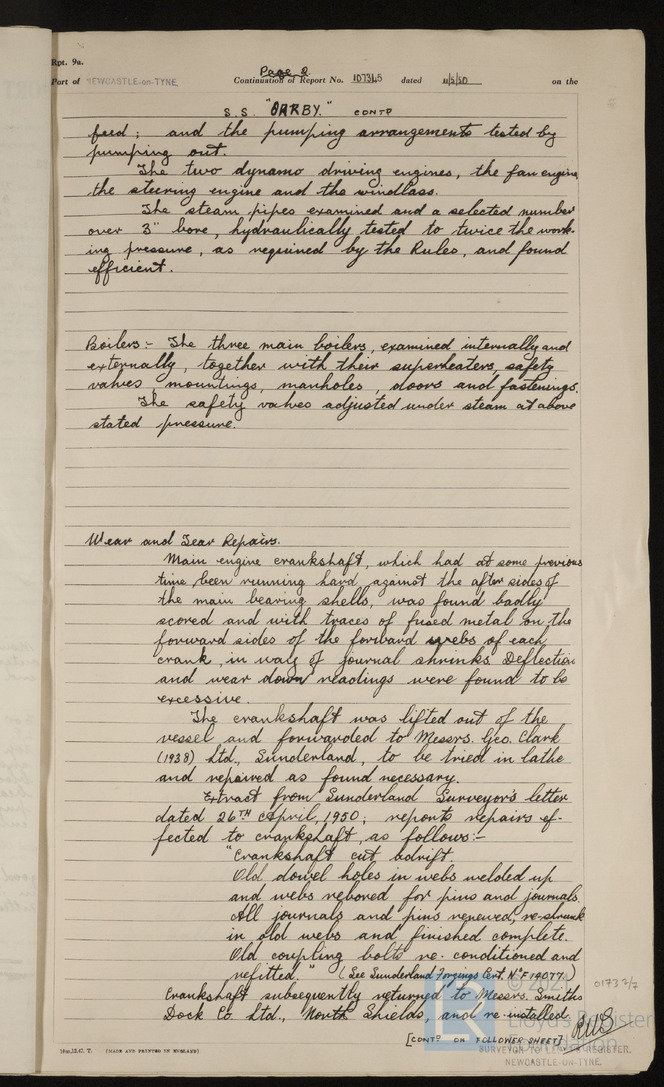 Rpt. 9a.
Page 2
Port of NEWCASTLE-on-TYNE. Continuation of Report No. 107345 dated 11/5/50 on the
S.S. "DARBY." CONTD
feed; and the pumping arrangements tested by
pumping out.
The two dynamo driving engines, the fan engine,
the steering engine and the windlass.
The steam pipes examined and a selected number
over 3" bore, hydraulically tested to twice the work-
ing pressure, as required by the Rules, and found
efficient.
Boilers:- The three main boilers, examined internally and
externally, together with their superheaters, safety
valves, mountings, manholes, doors and fastenings.
The safety valves adjusted under steam at above
stated pressure.
Wear and Tear Repairs.
Main engine crankshaft, which had at some previous
time been running hard against the after sides of
the main bearing shells, was found badly
scored and with traces of fused metal on the
forward sides of the forward webs of each
crank, in way of journal shrinks. Deflection
and wear down readings were found to be
excessive.
The crankshaft was lifted out of the
vessel and forwarded to Messrs. Geo. Clark
(1938) Ltd., Sunderland, to be tried in lathe
and repaired as found necessary.
Extract from Sunderland Surveyor's letter
dated 26TH April, 1950; reports repairs ef-
fected to crankshaft, as follows:-
"Crankshaft cut adrift.
Old dowel holes in webs welded up
and webs rebored for pins and journals.
All journals and pins renewed, re-shrunk
in old webs and finished complete.
Old coupling bolts re-conditioned and
refitted." (See Sunderland Forgings Cert. No F 19077.)
Crankshaft subsequently returned to Messrs. Smiths
Dock Co. Ltd., North Shields, and re-installed
[CONTD ON FOLLOWER SHEET]
SURVEYOR TO LLOYD'S REGISTER.
NEWCASTLE-ON-TYNE.
10m,12.47. T. (MADE AND PRINTED IN ENGLAND)
© 2021
Lloyd's Register
Foundation